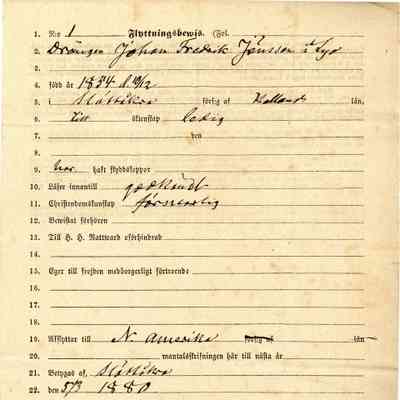 1. No 1 Flyttningsbewis. (Fol.
2. Drängen Johan Fredrik Jönsson i
3.
4. född år 1834 d. 10/12
5. i Slöttåkra förlig af Hallands län,
6. Till äktenskap ledig
7. den
8.
9. har haft skyddskoppor
10. Läser innantill godkändt
11. Christendomskunskap försvarlig
12. Bewistat förhören
13. Till H. H. Nattward oförhindrad
14.
15. Eger till frejden medborgerligt förtroende
16.
17.
18.
19. Afflyttar till N. Amerika förlig af län
20. mantalsskrifningen här till nästa år.
21. Betygas af, Slättåkra
22. den 5/3 1880